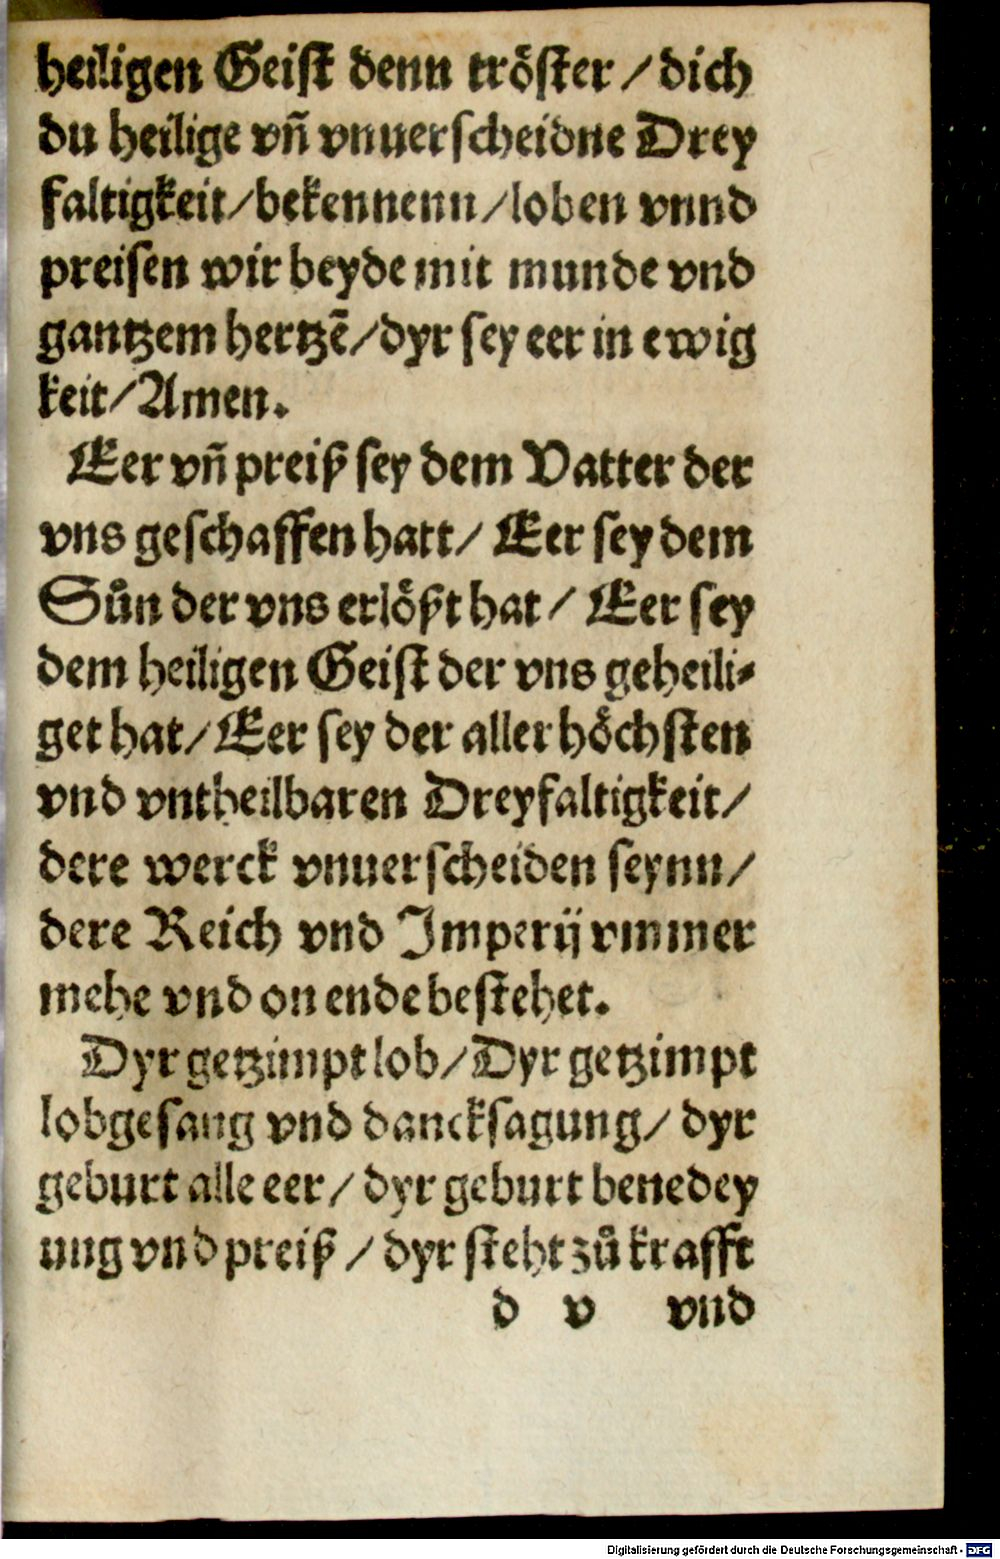 heiligen Geiſt denn tröſter / dich
du heilige vñ vnuerſcheidne Drey
faltigkeit / bekennenn / loben vnnd
preiſen wir beyde mit munde vnd
gantzem hertzē / dyr ſey eer in ewig
keit / Amen.
Eer vñ preiß ſey dem Vatter der
vns geſchaffen hatt / Eer ſey dem
Sůn der vns erlößt hat / Eer ſey
dem heiligen Geiſt der vns geheili⸗
get hat / Eer ſey der aller höchſten
vnd vntheilbaren Dreyfaltigkeit /
dere werck vnuerſcheiden ſeynn /
dere Reich vnd Imperij ymmer
mehe vnd on ende beſtehet.
Dyr getzimpt lob / Dyr getzimpt
lobgeſang vnd danckſagung / dyr
geburt alle eer / dyr geburt benedey
ung vnd preiß / dyr ſteht zů krafft
d v vnd
Digitalisierung gefördert durch die Deutsche Forschungsgemeinschaft - DFG